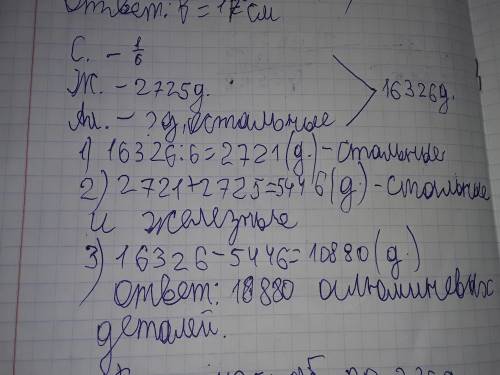 Ответ: В = 17 см
С. - 1/6
Ж. - 2725д.
Ал. - ?д, остальные
16326д.
1) 16326:6=2721(д.)-стальные
2) 2721+2725=5446(д.)-стальные
и железные
3) 16326-5446=10880(д.)
Ответ: 10880 алюминевых
деталей.